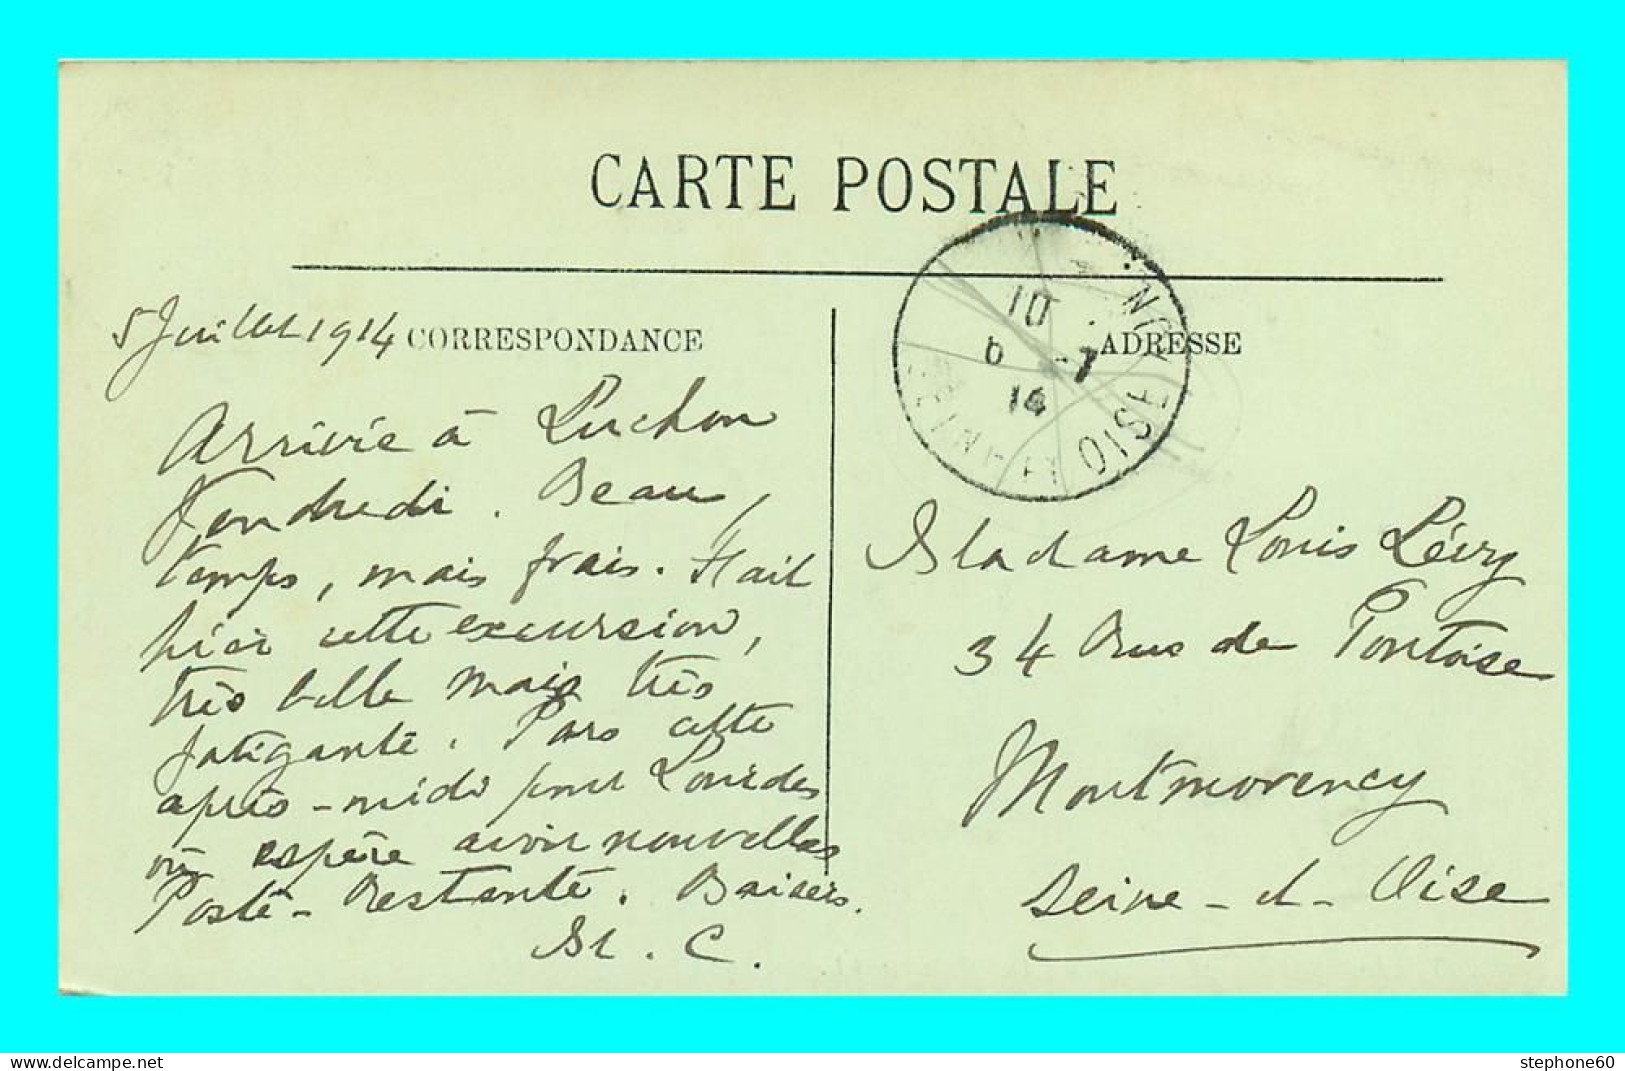 CARTE POSTALE
5 Juillet 1914 CORRESPONDANCE
Arrivée à Luchon
Vendredi. Beau
temps, mais frais. Fait
hier cette excursion,
très belle mais très
fatigante. Pars cette
après-midi pour Lourdes
où espère avoir nouvelles
Poste-Restante. Baisers.
M. C.
ADRESSE
10
6 -7
14
SEINE ET OISE
Madame Louis Lévy
34 Rue de Pontoise
Montmorency
Seine-et-Oise
stephone60